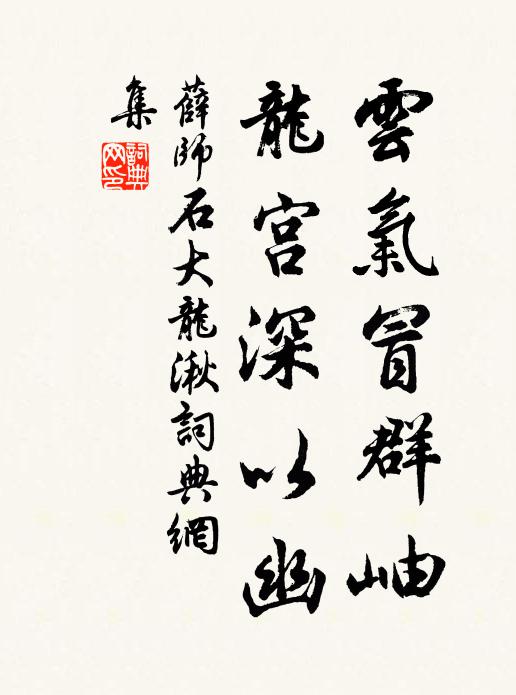 雲氣冒群岫
龍宮深以幽
薛師石大龍湫詞典網
集
詞典
网印